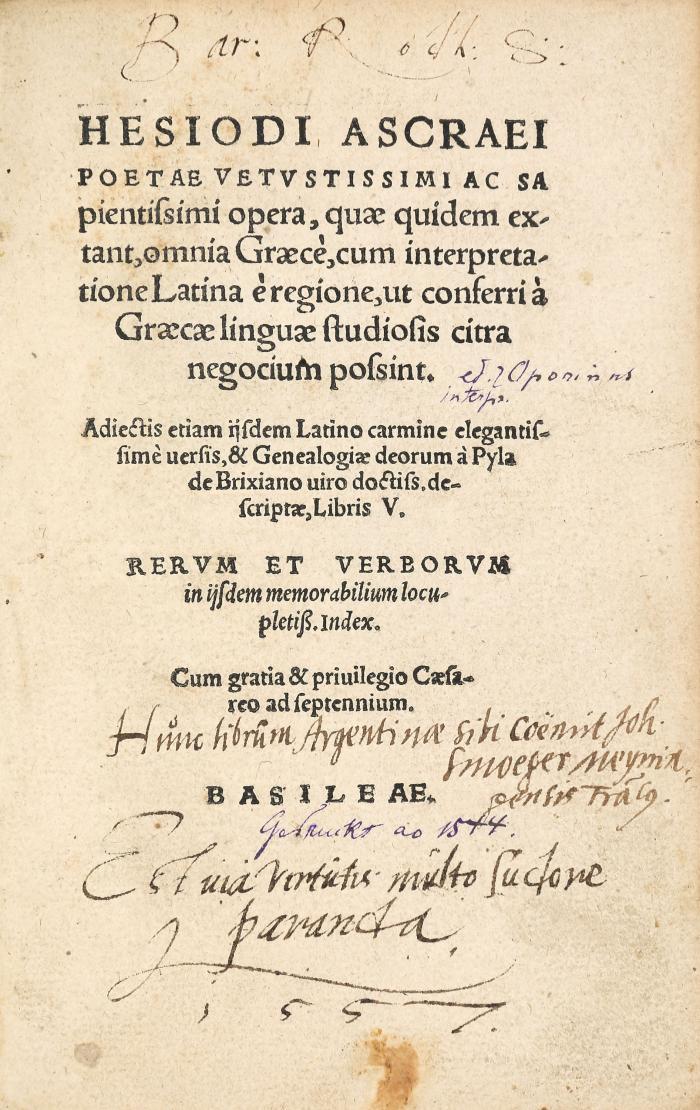 Bar: Rodh: S:
HESIODI ASCRAEI
POETAE VETVSTISSIMI AC SA
pientiſsimi opera, quæ quidem ex-
tant, omnia Græcè, cum interpreta-
tione Latina è regione, ut conferri à
Græcæ linguæ ſtudioſis citra
negocium poſsint.
ed. Oporinus
interpr.
Adiectis etiam ijſdem Latino carmine elegantiſ-
ſimè uerſis, & Genealogiæ deorum à Pyla
de Brixiano uiro doctiſs. de-
ſcriptæ, Libris V.
RERVM ET VERBORVM
in ijſdem memorabilium locu-
pletiß. Index.
Cum gratia & priuilegio Cæſa-
reo ad ſeptennium.
Hunc librum Argentinæ sibi coëmit Joh.
BASILEAE.
Gedruckt ao 1544.
Est via virtutis multo sudore
paranda.
1557.